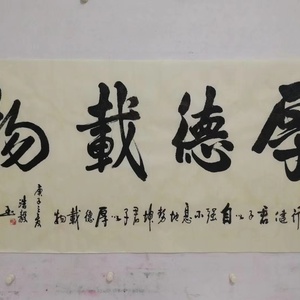 厚德載物
行健君子以自强不息地勢坤君子以厚德載物
庚子之夏